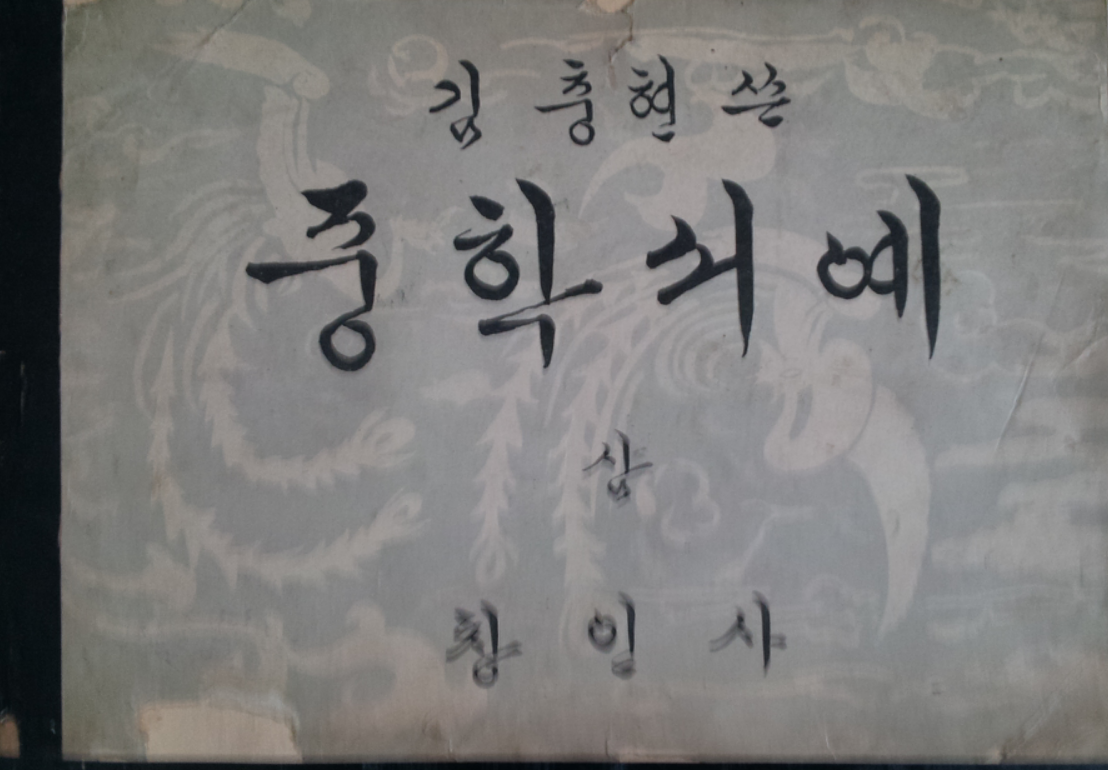 김충현 쓴
중학서예
상
창인사